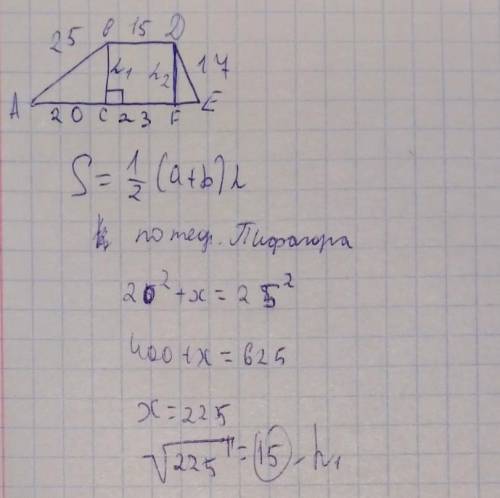 25 B 15 D
h₁ h₂ 17
A 20 C 23 F E
S = 1/2 (a+b) h
по теор. Пифагора
20² + x = 25²
400 + x = 625
x = 225
√225 = 15 - h₁